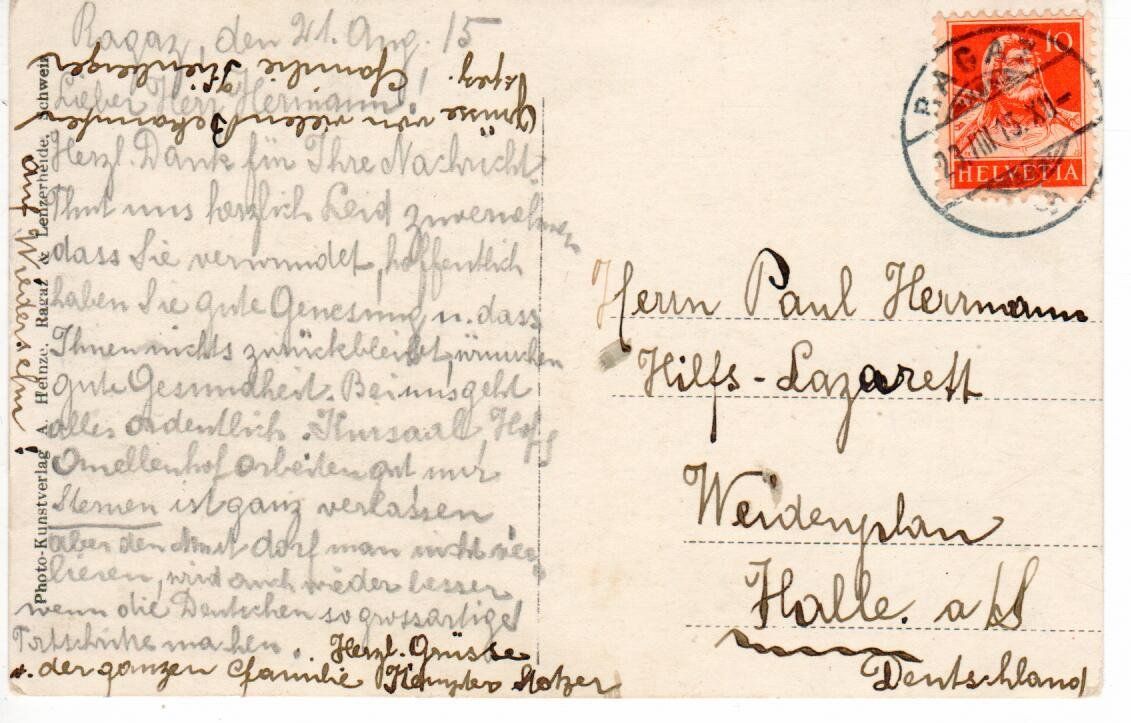 Ragaz, den 21. Aug. 15
Lieber Herr Hermann!
Herzl. Dank für Ihre Nachricht
Thut uns herzlich Leid zu vernehmen
dass Sie verwundet, hoffentlich
haben Sie gute Genesung u. dass
Ihnen nichts zurückbleibt, wünschen
gute Gesundheit. Bei uns geht
alles ordentlich. Kursaal, Hof
Quellenhof arbeiten gut nur
Sternen ist ganz verlassen
aber den Mut darf man nicht ver-
lieren, wird auch wieder besser
wenn die Deutschen so grossartige
Fortschritte machen.
Herzl. Grüsse
v. der ganzen Familie
Grüsse von vielen Bekannten
spez. Familie
auf Wiedersehn!
Photo-Kunstverlag A. Heinze, Ragaz & Lenzerheide, Schweiz
10
HELVETIA
RAGAZ
23.VIII.15. XII-
Herrn Paul Herrmann
Hilfs-Lazarett
Weidenplan
Halle. a/S
Deutschland